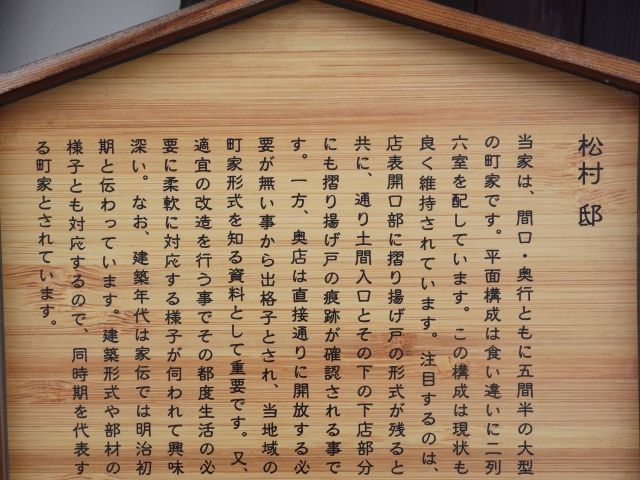 松村 邸
当家は、間口・奥行ともに五間半の大型
の町家です。平面構成は食い違いに二列
六室を配しています。この構成は現状も
良く維持されています。注目するのは、
店表開口部に摺り揚げ戸の形式が残ると
共に、通り土間入口とその下の下店部分
にも摺り揚げ戸の痕跡が確認される事で
す。一方、奥店は直接通りに開放する必
要が無い事から出格子とされ、当地域の
町家形式を知る資料として重要です。又、
適宜の改造を行う事でその都度生活の必
要に柔軟に対応する様子が伺われて興味
深い。なお、建築年代は家伝では明治初
期と伝わっています。建築形式や部材の
様子とも対応するので、同時期を代表す
る町家とされています。